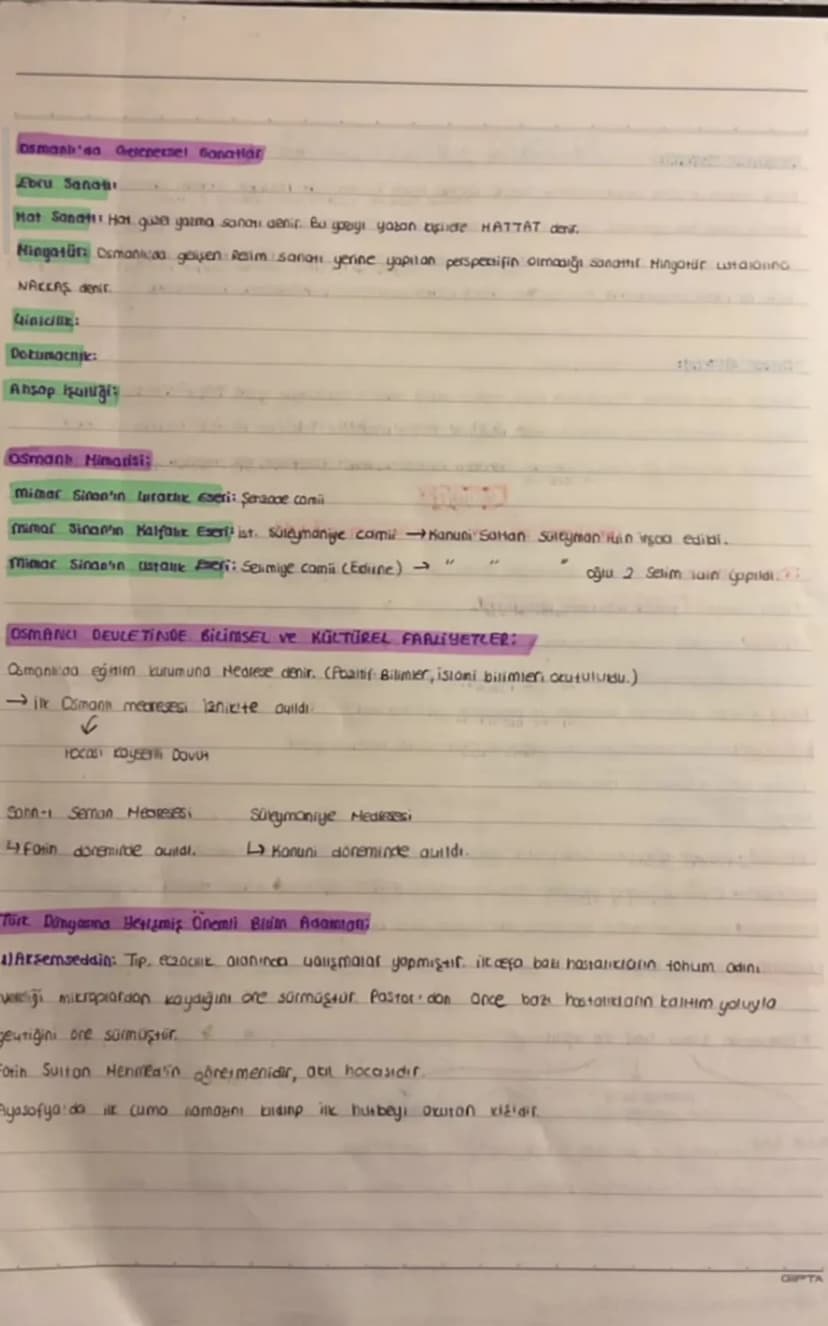 Osmanlı'da Geleneksel Sanatlar
Ebru Sanatı:
Hat Sanatı: Hat güzel yazma sanatı denir. Bu yapıyı yazan kişilere HATTAT denir.
Minyatür: Osmanlıda gelişen Resim sanatı yerine yapılan perspektifin olmadığı sanattır. Minyatür ustalarına
NAKKAŞ denir.
Çinicilik:
Dokumacılık:
Ahşap İşçiliği:
Osmanlı Mimarisi:
Mimar Sinan'ın Çıraklık Eseri: Şehzade camii
Mimar Sinan'ın Kalfalık Eseri: ist. Süleymaniye camii → Kanuni Sultan Süleyman için inşaa edildi.
Mimar Sinan'ın Ustalık Eseri: Selimiye camii (Edirne) → " " " oğlu 2 Selim için yapıldı.
OSMANLI DEVLETİNDE BİLİMSEL VE KÜLTÜREL FAALİYETLER:
Osmanlıda eğitim kurumuna Medrese denir. (Pozitif Bilimler, islami bilimleri okutulurdu.)
→ ilk Osmanlı medresesi iznikte açıldı.
↓
Hocası Kayserili Davut
Sahn-ı Seman Medresesi Süleymaniye Medresesi
↳ Fatih döneminde açıldı. ↳ Kanuni döneminde açıldı.
Türk Dünyasına Yetişmiş Önemli Bilim Adamları:
1) Akşemseddin: Tıp, eczacılık alanında çalışmalar yapmıştır. ilk defa bazı hastalıkların tohum adını
verdiği mikroplardan kaydığını öne sürmüştür. Pastör'dan önce bazı hastalıkların kalıtım yoluyla
geçtiğini öne sürmüştür.
Fatih Sultan Mehmed'in öğretmenidir, akıl hocasıdır.
Ayasofya'da ilk cuma namazını ilk hutbeyi okutan kişidir.
GIPTA